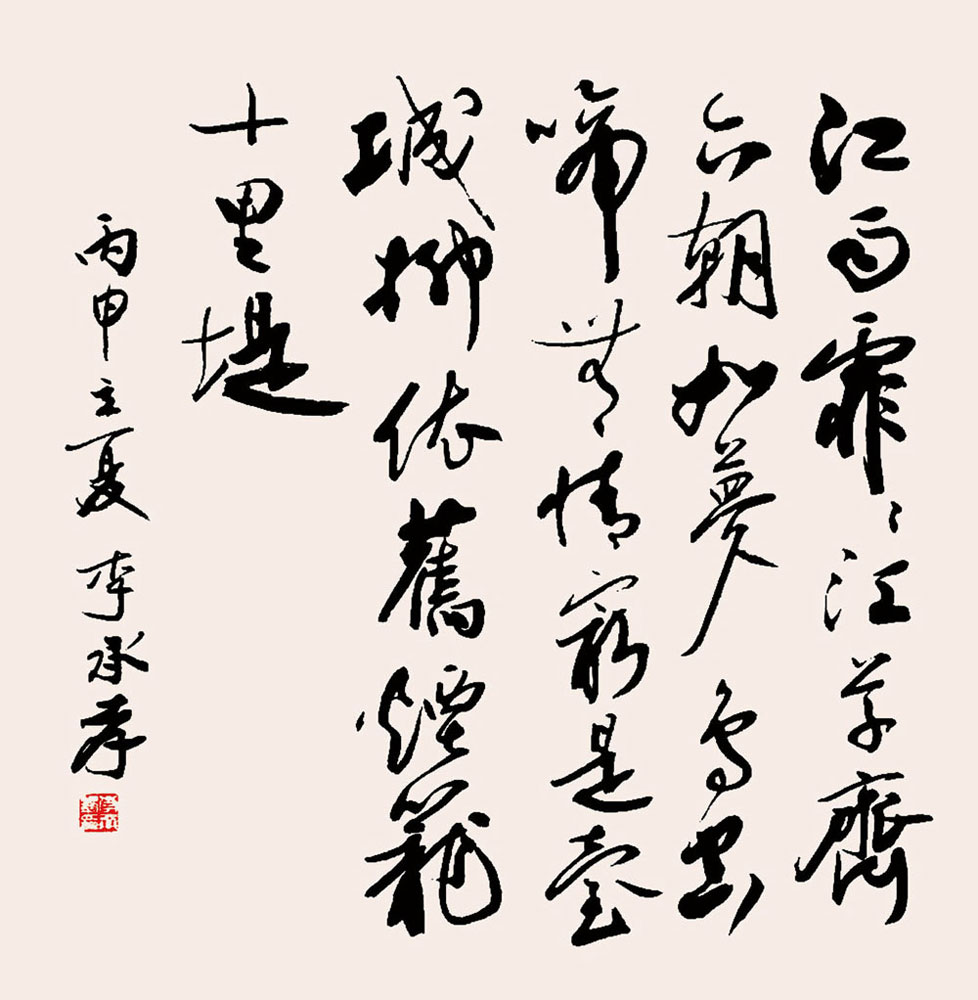 江雨霏々江草齊
六朝如夢鳥空
啼無情最是臺
城柳依舊煙籠
十里堤
丙申立夏 李承孝